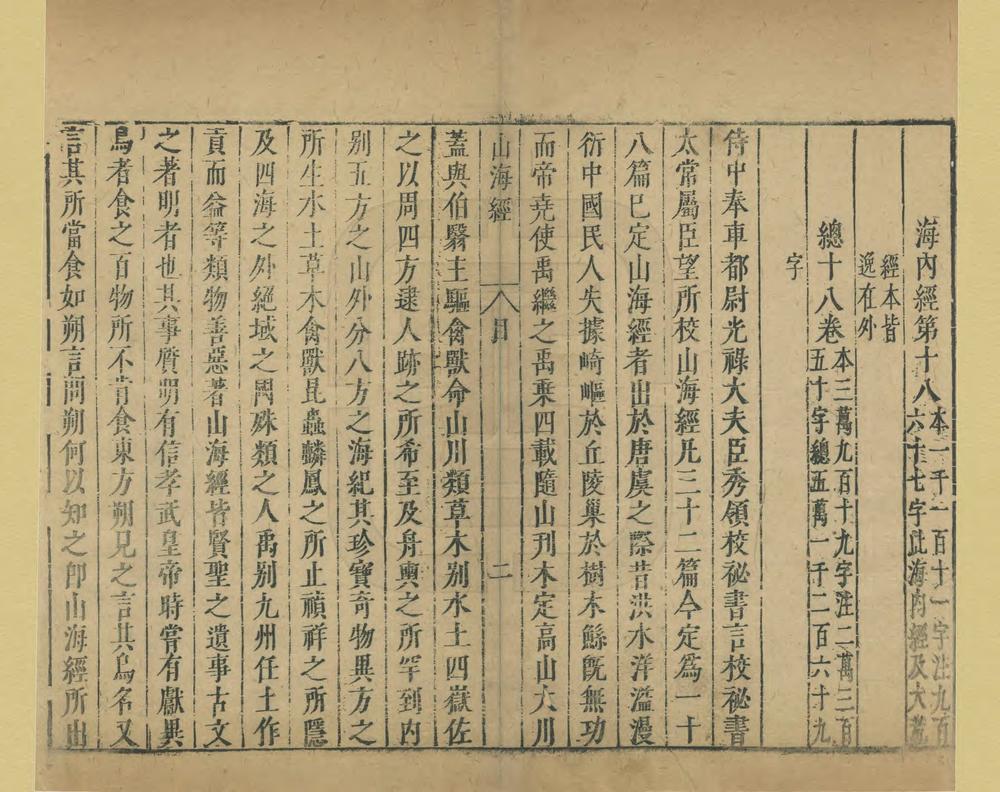 海內經第十八本一千一百一十一字注九百六十七字此海內經及大荒
經本皆逸在外
總十八卷本三萬九百十九字注二萬三百五十字總五萬一千二百六十九
字
侍中奉車都尉光祿大夫臣秀領校祕書言校祕書
太常屬臣望所校山海經凡三十二篇今定爲一十
八篇已定山海經者出於唐虞之際昔洪水洋溢漫
衍中國民人失據崎嶇於丘陵巢於樹木鯀旣無功
而帝堯使禹繼之禹乗四載隨山刋木定高山大川
山海經 目 二
蓋與伯翳主驅禽獸命山川類草木别水土四嶽佐
之以周四方逮人跡之所希至及舟輿之所罕到内
别五方之山外分八方之海紀其珍寶奇物異方之
所生水土草木禽獸昆蟲麟鳳之所止禎祥之所隱
及四海之外絕域之國殊類之人禹别九州任土作
貢而益等類物善惡著山海經皆賢聖之遺事古文
之著明者也其事質明有信孝武皇帝時嘗有獻異
鳥者食之百物所不肯食東方朔見之言其鳥名又
言其所當食如朔言問朔何以知之卽山海經所出